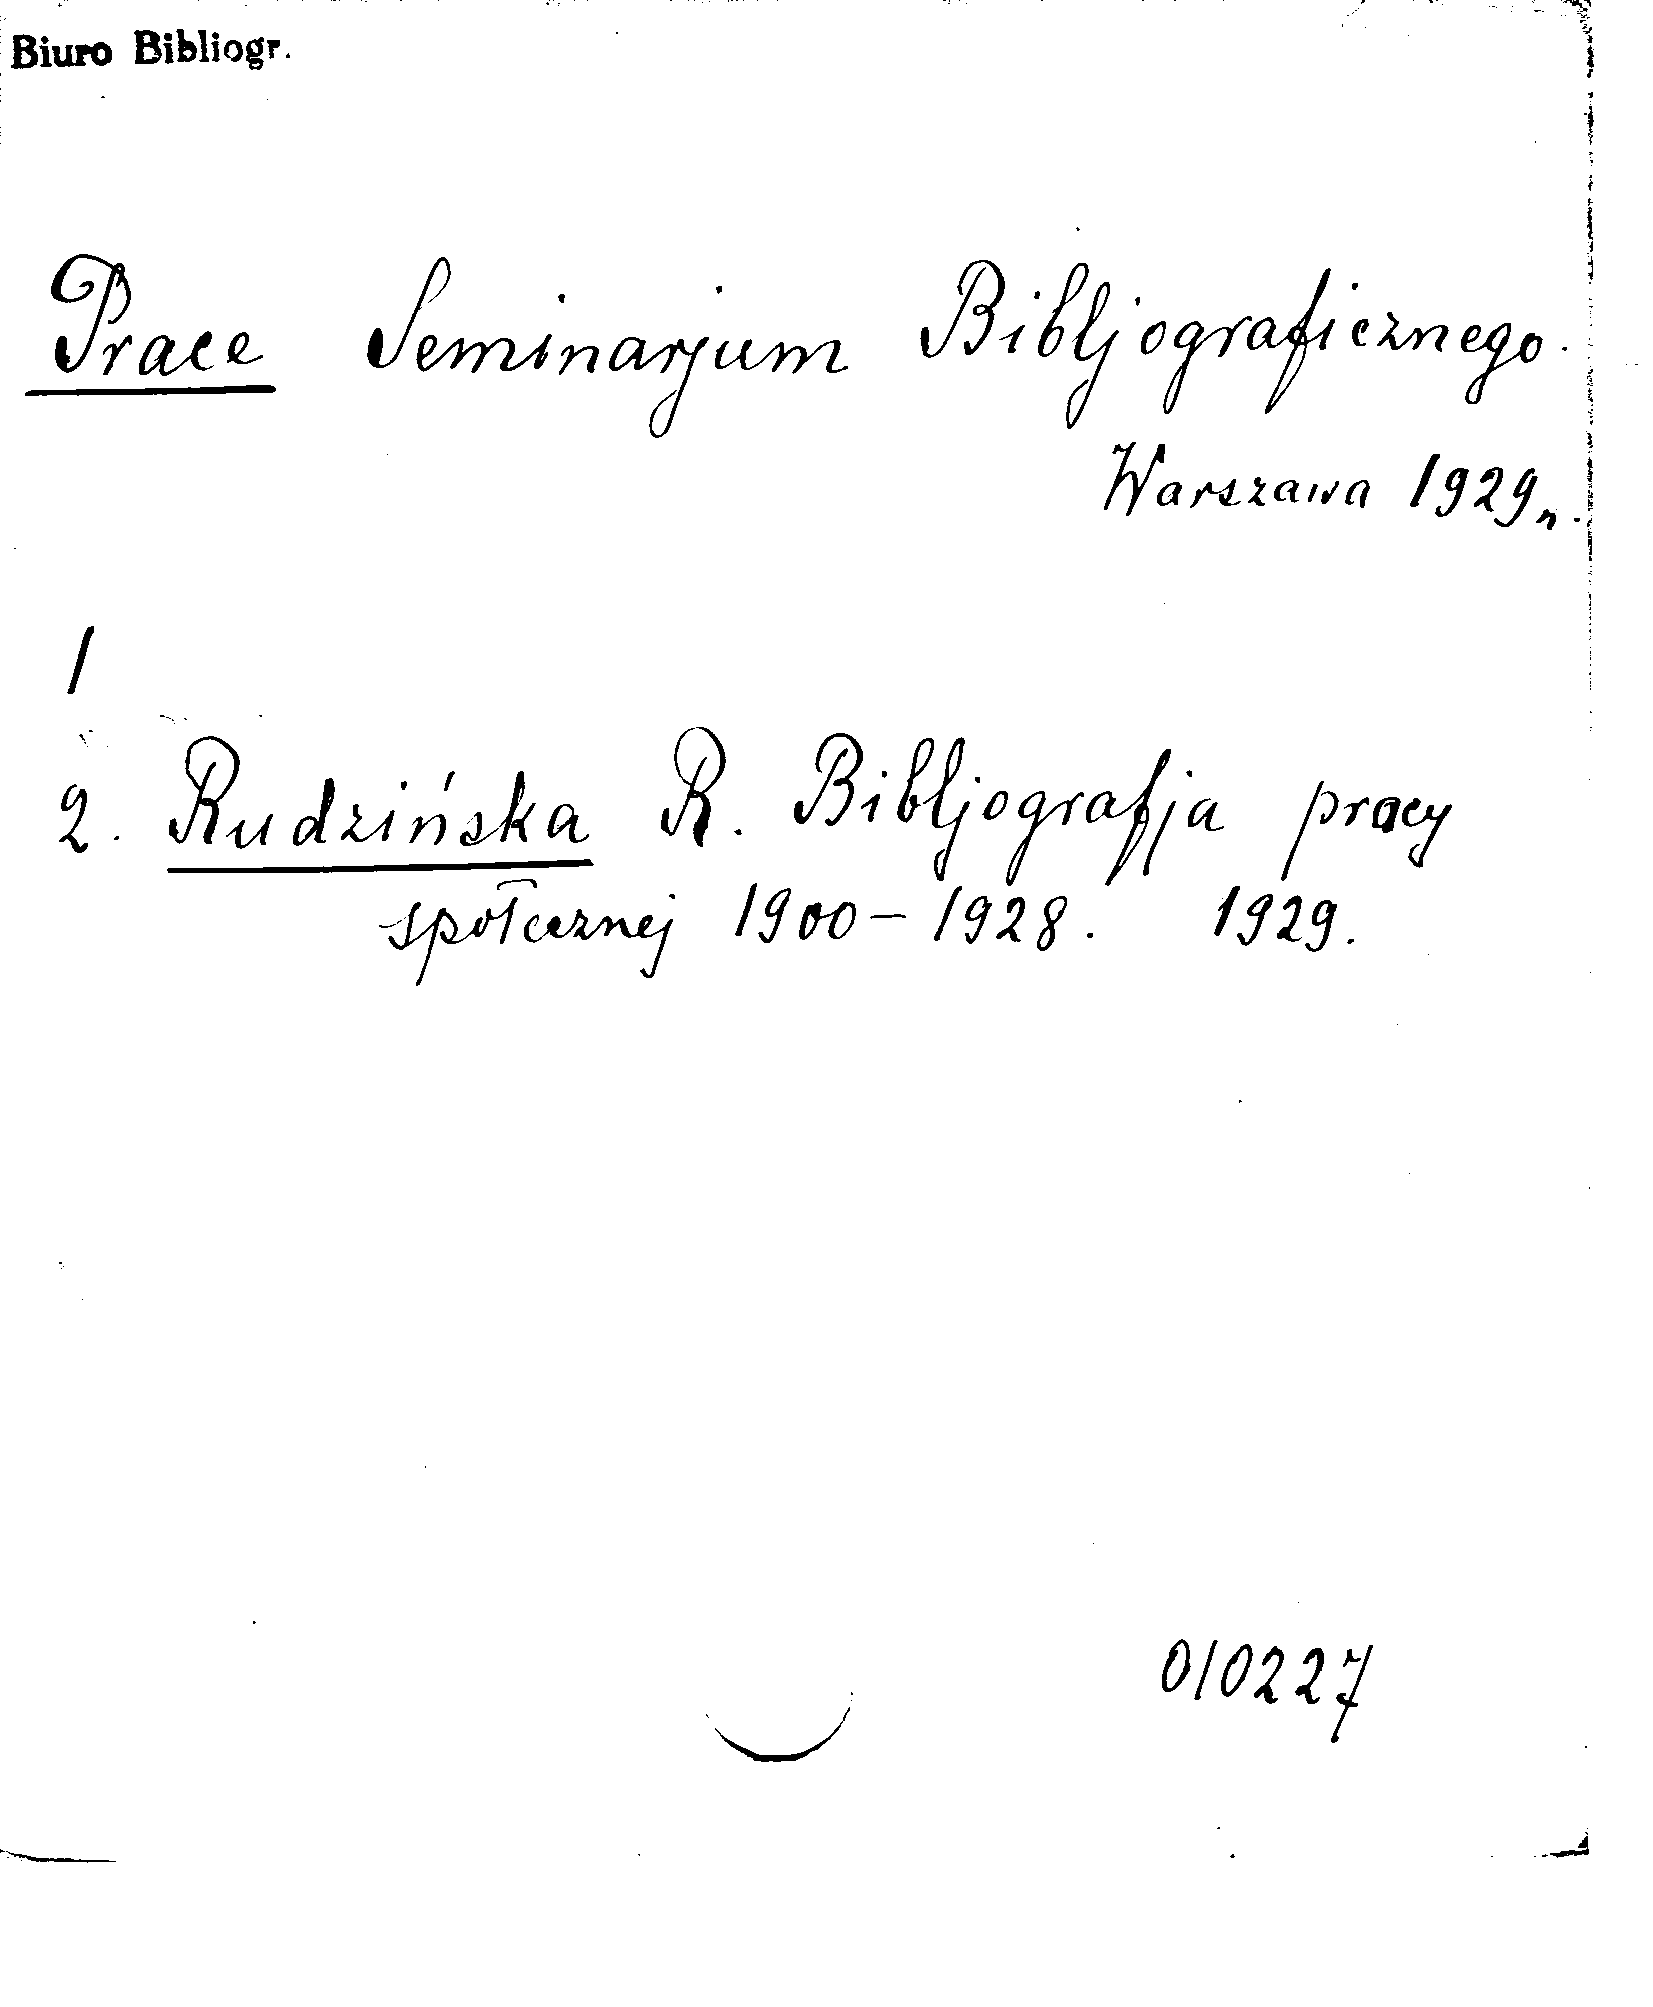 Biuro Bibliogr.
Prace Seminarjum Bibljograficznego.
Warszawa 1929n.
1
2. Rudzińska R. Bibljografja pracy
społecznej 1900-1928. 1929.
010227